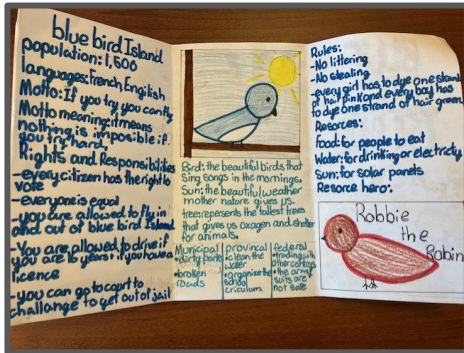 blue bird Island
population: 1,500
languages: French English
Motto: If you try you can fly
Motto meaning: it means
nothing is impossible if
you try hard.
Rights and Responsibilities
-every citizen has the right to
vote
-everyone is equal
-you are allowed to fly in
and out of blue bird Island
-You are allowed to drive if
you are 16 years + if you have a
licence
-you can go to court to
challange to get out of jail
Bird: the beautiful birds that
sing songs in the mornings.
Sun: the beautiful weather
mother nature gives us.
tree: represents the tallest trees
that gives us oxagen and shelter
for animals.
Municipal
•dirty parks
•broken
roads
provincal
•clean the
water
•organize the
school
criculum
federal
•trading with
other contrys
•the army
suits are
not safe
Rules:
-No littering
-No stealing
-every girl has to dye one strand
of hair pink and every boy has
to dye one strand of hair green.
Resorces:
Food: for people to eat
Water: for drinking or electricty
Sun: for solar panels
Resorce hero:
Robbie
the
Robin